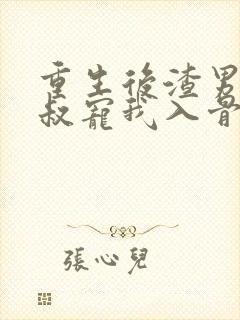 重生後渣男
叔寵我入骨
張心兒